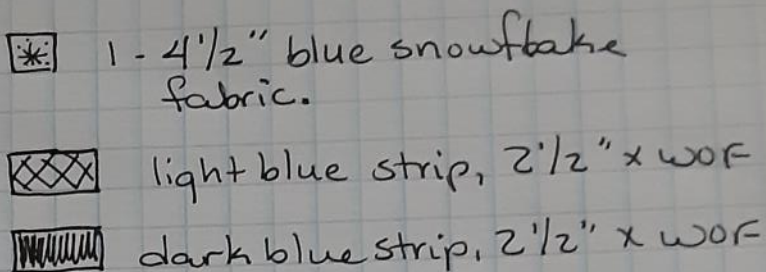 1 - 4 1/2" blue snowflake
fabric.
light blue strip, 2 1/2" x WOF
dark blue strip, 2 1/2" x WOF